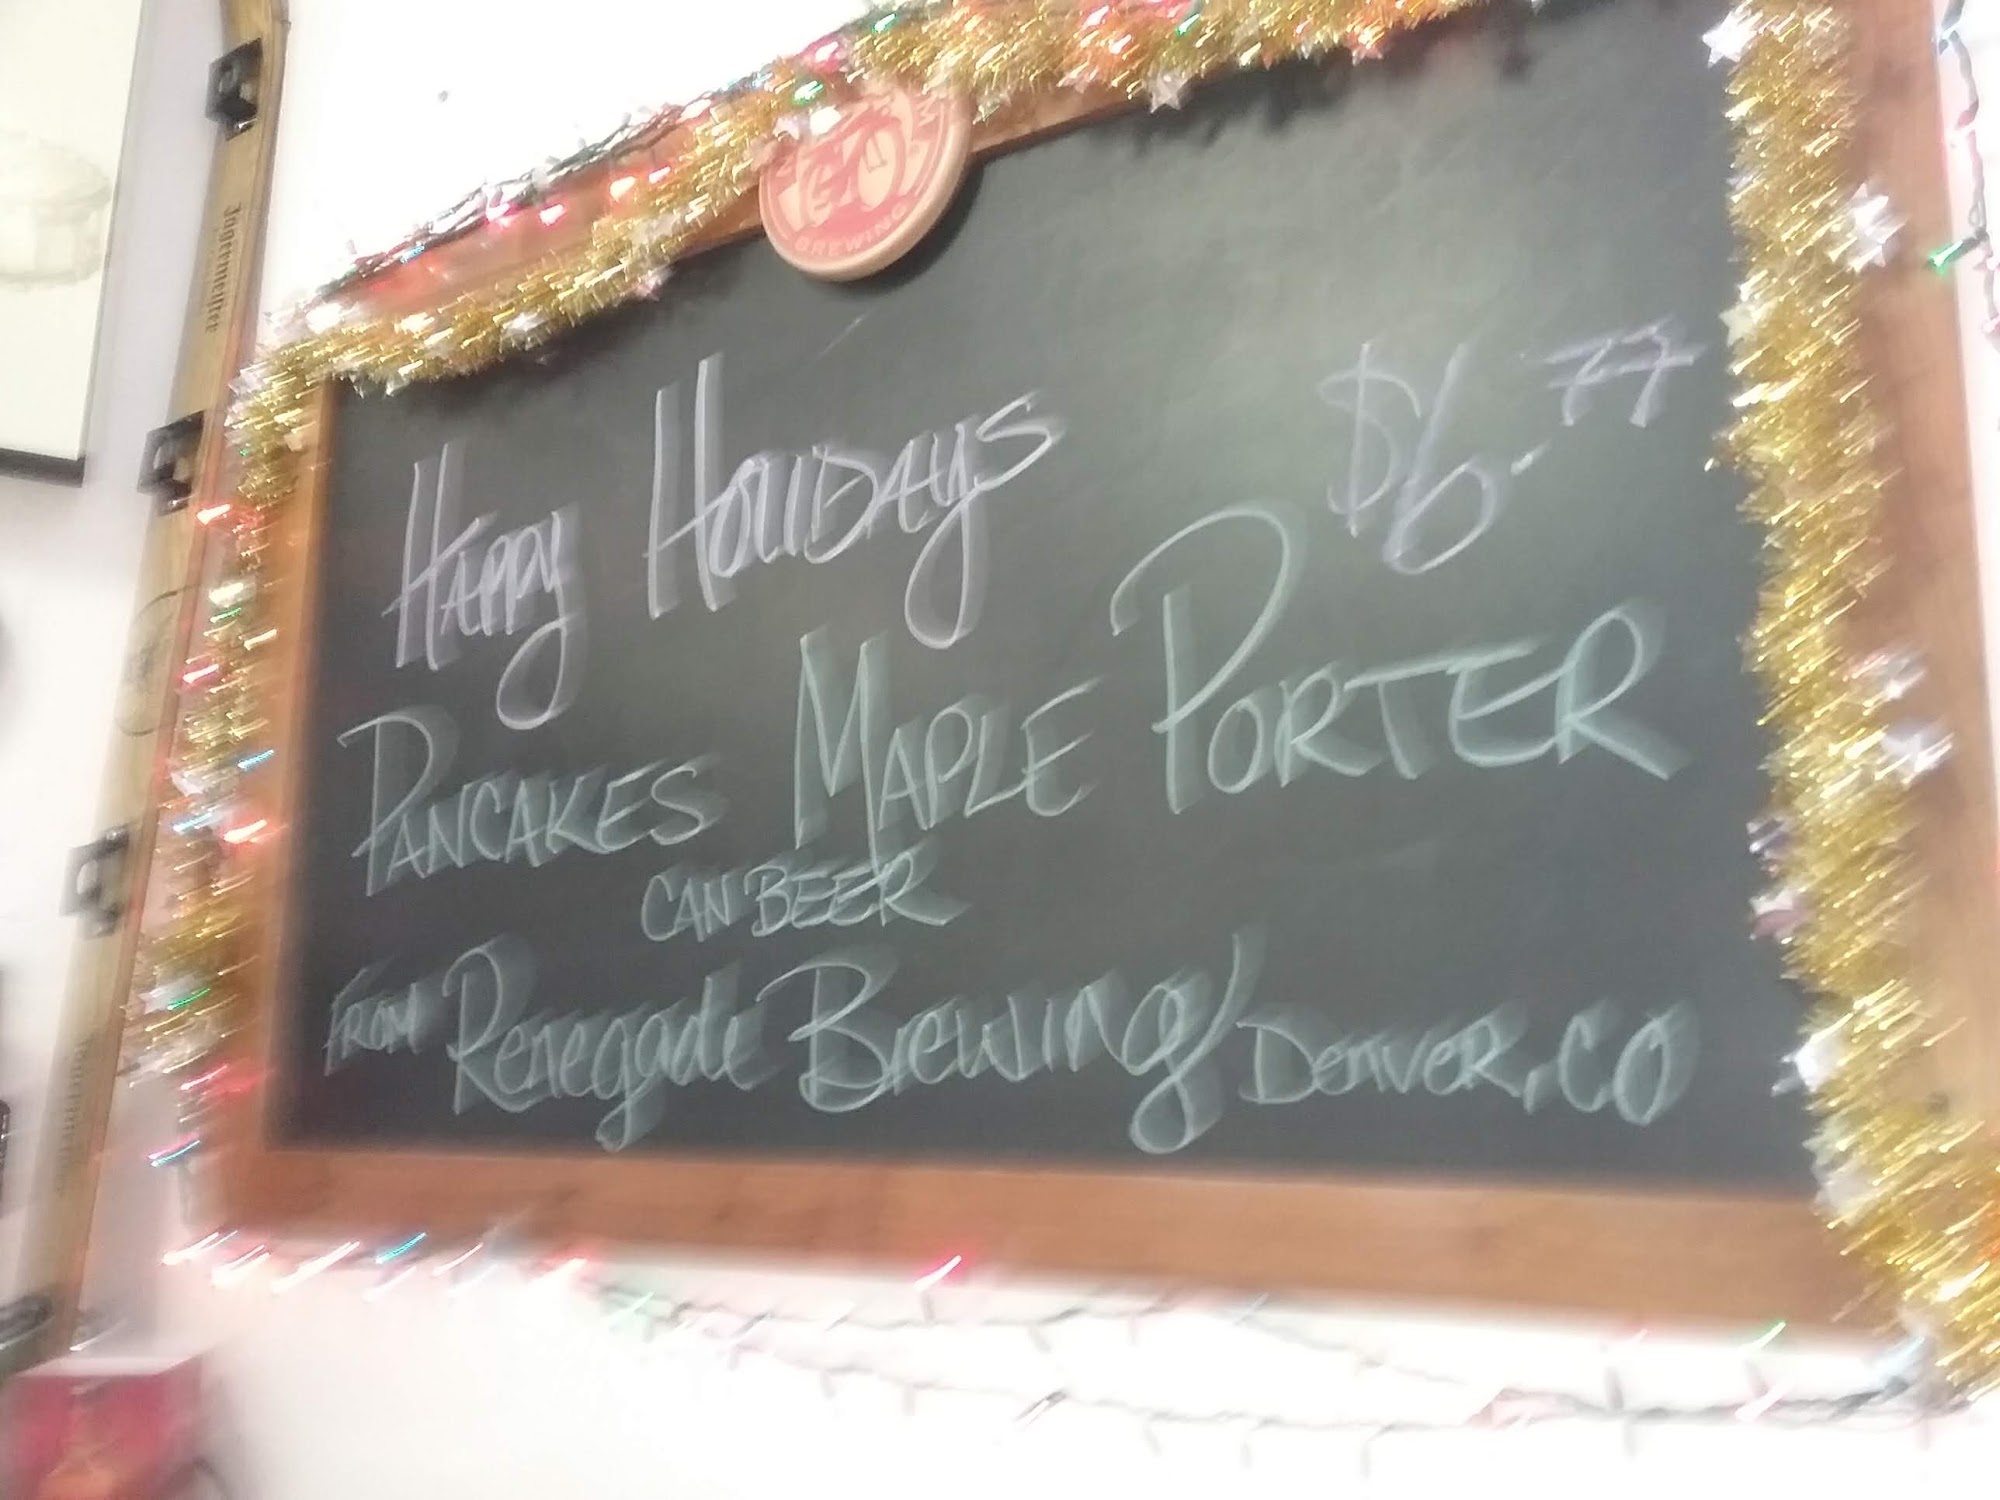 BREWING
Jägermeister
Happy Holidays $6.77
PANCAKES MAPLE PORTER
CAN BEER
FROM Renegade Brewing/Denver, CO